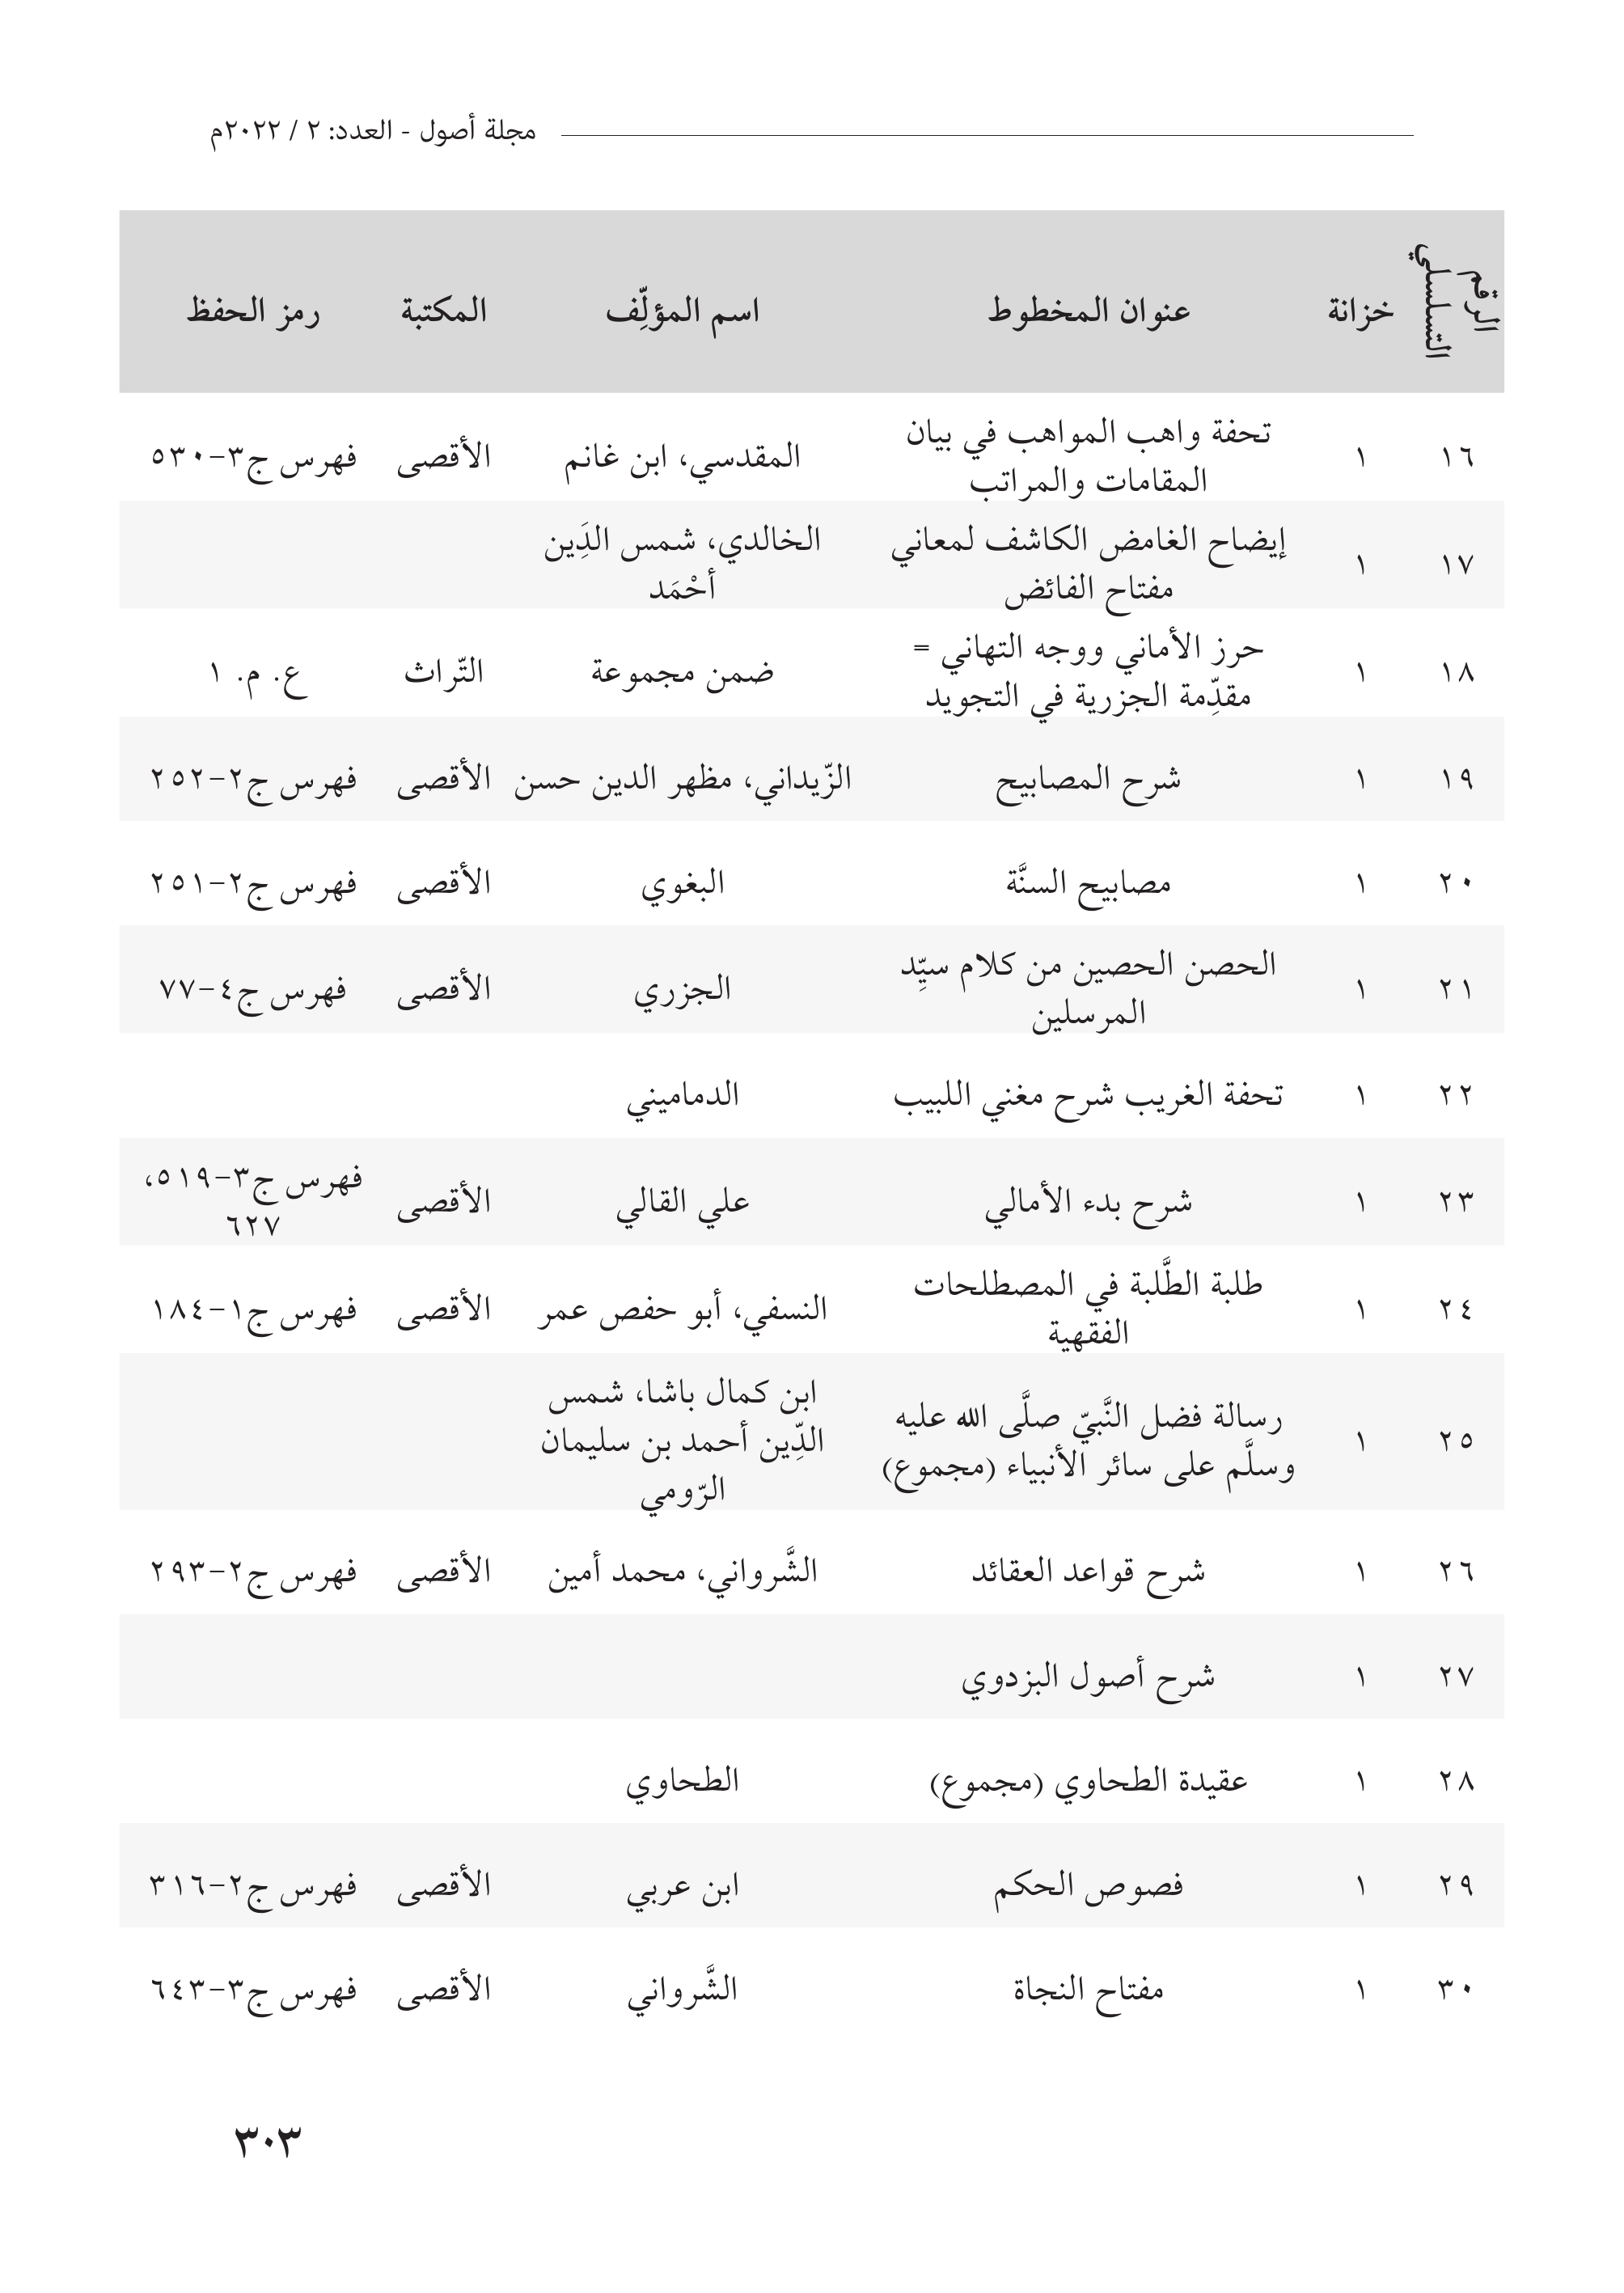 مجلة أصول - العدد: ٢ / ٢٠٢٢م
الرقم التسلسلي خزانة عنوان المخطوط اسم المؤلِّف المكتبة رمز الحفظ
١٦ ١ تحفة واهب المواهب في بيان المقامات والمراتب المقدسي، ابن غانم الأقصى فهرس ج٣-٥٣٠
١٧ ١ إيضاح الغامض الكاشف لمعاني مفتاح الفائض الخالدي، شمس الدَِين أحْمَد
١٨ ١ حرز الأماني ووجه التهاني = مقدِّمة الجزرية في التجويد ضمن مجموعة التّراث ع. م. ١
١٩ ١ شرح المصابيح الزّيداني، مظهر الدين حسن الأقصى فهرس ج٢-٢٥٢
٢٠ ١ مصابيح السنَّة البغوي الأقصى فهرس ج٢-٢٥١
٢١ ١ الحصن الحصين من كلام سيِّد المرسلين الجزري الأقصى فهرس ج٤-٧٧
٢٢ ١ تحفة الغريب شرح مغني اللبيب الدماميني
٢٣ ١ شرح بدء الأمالي علي القالي الأقصى فهرس ج٣-٥١٩، ٦٢٧
٢٤ ١ طلبة الطَّلبة في المصطلحات الفقهية النسفي، أبو حفص عمر الأقصى فهرس ج١-١٨٤
٢٥ ١ رسالة فضل النَّبيّ صلَّى الله عليه وسلَّم على سائر الأنبياء (مجموع) ابن كمال باشا، شمس الدِّين أحمد بن سليمان الرّومي
٢٦ ١ شرح قواعد العقائد الشَّرواني، محمد أمين الأقصى فهرس ج٢-٢٩٣
٢٧ ١ شرح أصول البزدوي
٢٨ ١ عقيدة الطحاوي (مجموع) الطحاوي
٢٩ ١ فصوص الحكم ابن عربي الأقصى فهرس ج٢-٣١٦
٣٠ ١ مفتاح النجاة الشَّرواني الأقصى فهرس ج٣-٦٤٣
٣٠٣